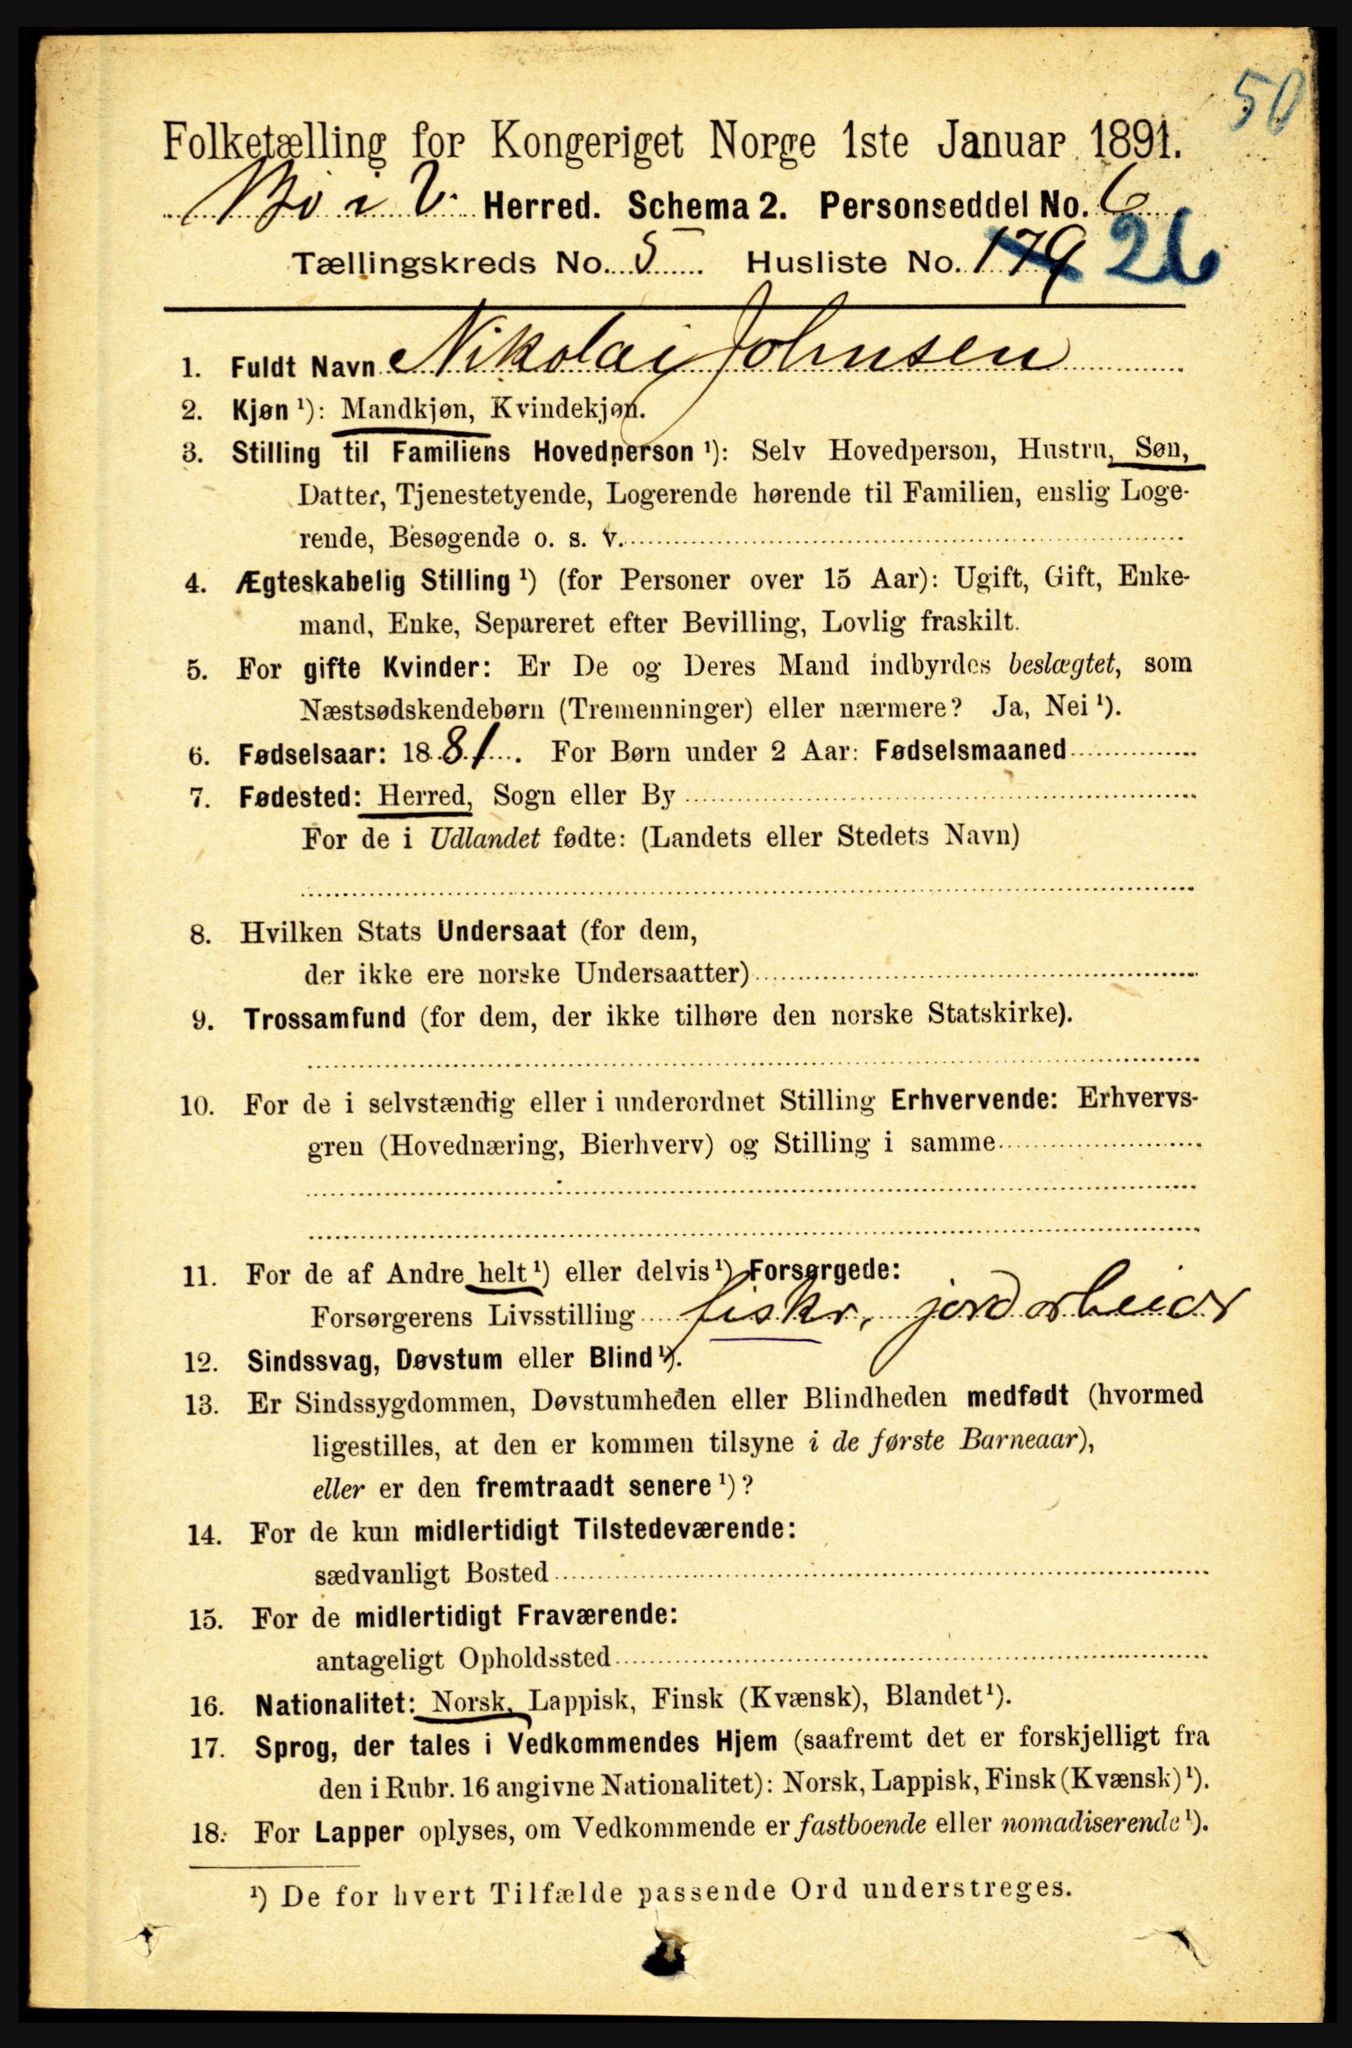 50
Folketælling for Kongeriget Norge 1ste Januar 1891.
Bø i V. Herred. Schema 2. Personseddel No. 6
Tællingskreds No. 5 Husliste No. 179 26
1. Fuldt Navn Nikolai Johnsen
2. Kjøn ¹): Mandkjøn, Kvindekjøn.
3. Stilling til Familiens Hovedperson ¹): Selv Hovedperson, Hustru, Søn,
Datter, Tjenestetyende, Logerende hørende til Familien, enslig Loge-
rende, Besøgende o. s. v.
4. Ægteskabelig Stilling ¹) (for Personer over 15 Aar): Ugift, Gift, Enke-
mand, Enke, Separeret efter Bevilling, Lovlig fraskilt.
5. For gifte Kvinder: Er De og Deres Mand indbyrdes beslægtet, som
Næstsødskendebørn (Tremenninger) eller nærmere? Ja, Nei ¹).
6. Fødselsaar: 1881. For Børn under 2 Aar: Fødselsmaaned
7. Fødested: Herred, Sogn eller By
For de i Udlandet fødte: (Landets eller Stedets Navn)
8. Hvilken Stats Undersaat (for dem,
der ikke ere norske Undersaatter)
9. Trossamfund (for dem, der ikke tilhøre den norske Statskirke).
10. For de i selvstændig eller i underordnet Stilling Erhvervende: Erhvervs-
gren (Hovednæring, Bierhverv) og Stilling i samme
11. For de af Andre helt ¹) eller delvis ¹) Forsørgede:
Forsørgerens Livsstilling fiskr, jordarbeider
12. Sindssvag, Døvstum eller Blind ¹).
13. Er Sindssygdommen, Døvstumheden eller Blindheden medfødt (hvormed
ligestilles, at den er kommen tilsyne i de første Barneaar),
eller er den fremtraadt senere ¹)?
14. For de kun midlertidigt Tilstedeværende:
sædvanligt Bosted
15. For de midlertidigt Fraværende:
antageligt Opholdssted
16. Nationalitet: Norsk, Lappisk, Finsk (Kvænsk), Blandet ¹).
17. Sprog, der tales i Vedkommendes Hjem (saafremt det er forskjelligt fra
den i Rubr. 16 angivne Nationalitet): Norsk, Lappisk, Finsk (Kvænsk) ¹).
18. For Lapper oplyses, om Vedkommende er fastboende eller nomadiserende ¹).
¹) De for hvert Tilfælde passende Ord understreges.